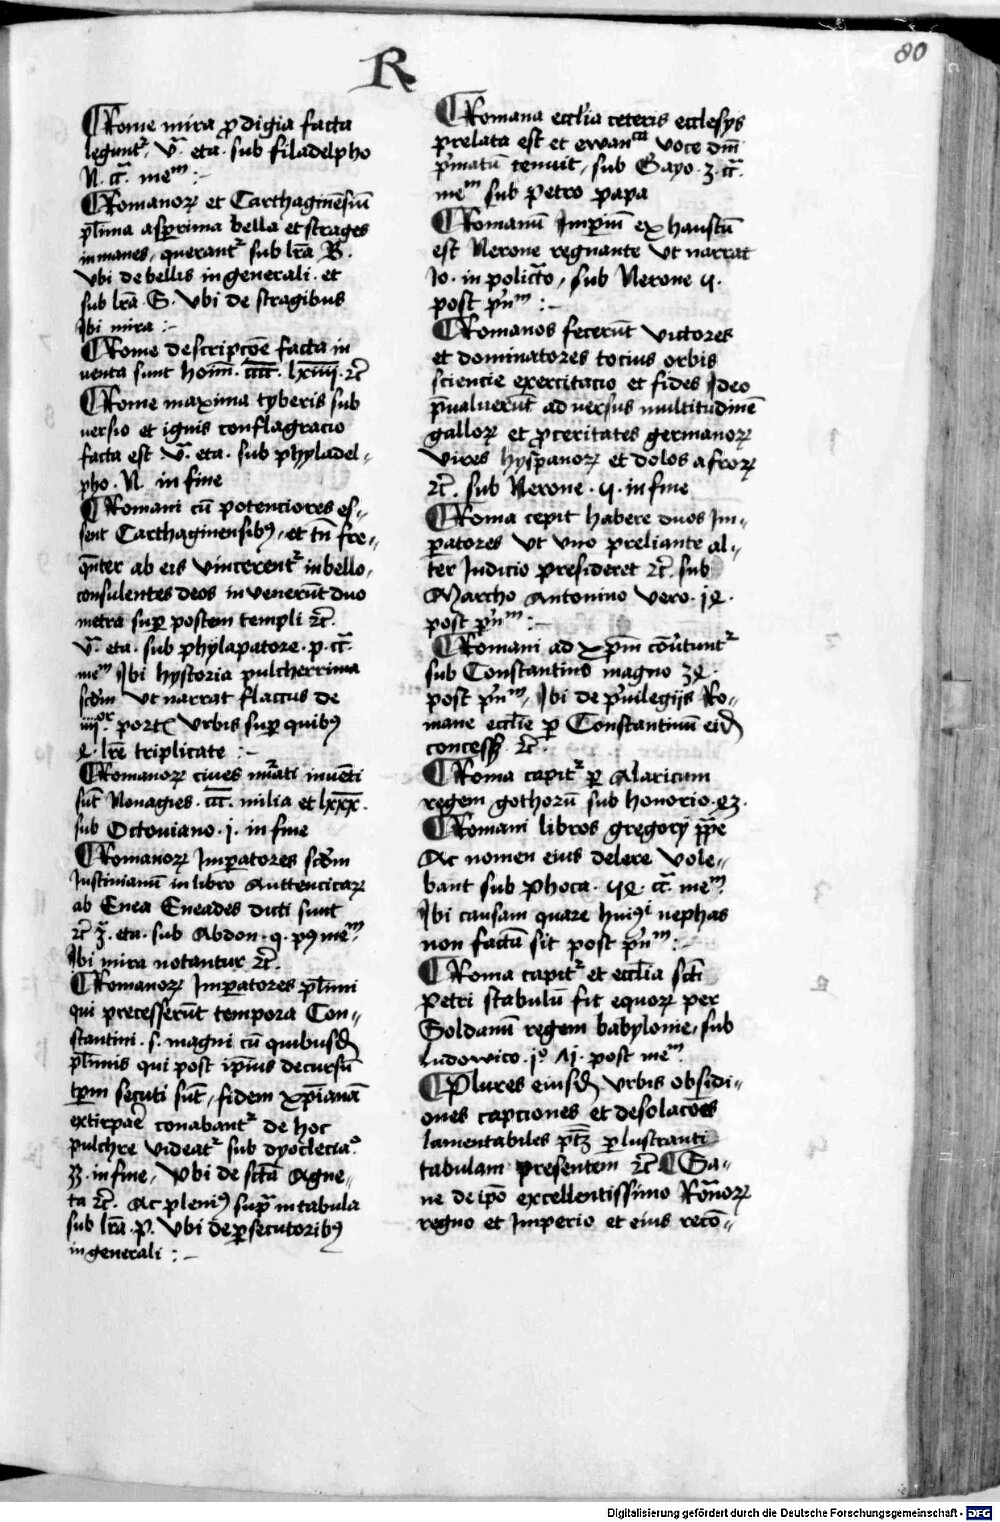 R
80
¶Rome mira ꝓdigia facta
legunt᷑, v. eta. sub filadelpho
N. cc̃. meᵐ :-
¶Romanoꝝ et Carthaginẽsiũ
pl̃ima aspꝛima bella et strages
inmanes, querant᷑ sub lrã B.
vbi de bellis in generali. et
sub lrã. S. vbi de stragibus
Jbi mira :-
¶Rome descripcõe facta in
uenta sunt hoĩm̃.
¶Rome maxima tyberis sub
uersio et ignis conflagracio
facta est v. eta. sub phyladel-
pho. N. in fine
¶Romani cũ potenciores es-
sent Carthaginensibꝰ, et tñ fre-
qũter ab eis vincerent᷑ in bello,
consulentes deos in venerũt duo
metra suꝑ postem templi ⁊c̃.
v. eta. sub phylapatore. p. cc̃.
meᵐ Jbi hystoria pulcherrima
scďm vt narrat flaccus de
iiijᵒʳ portꝭ vrbis suꝑ quibꝰ
lrẽ triplicate :-
¶Romanoꝝ ciues nũ᷑ati inuẽti
sũt Nonagies. milia et lxxx.
sub Octouiano. j. in fine
¶Romanoꝝ Jmꝑatores scďm
Justinianũ in libro Auttenticaꝝ
ab Enea Eneades dicti sunt
⁊c̃ 3. eta. sub Abdon. q. pꝰ meᵐ.
Jbi mira notantur ⁊c̃.
¶Romanoꝝ Jmꝑatores pl̃imi
qui precesserũt tempora Con-
stantini. s. magni cũ quibusď
pl̃imis qui post ip̃ius decursũ
tꝑm secuti sũt, fidem xp̃ianã
extirpaẽ conabant᷑ de hoc
pulchre videat᷑ sub dyoclecia.
33. in fine, vbi de sc̃tã Agne-
ta ⁊c̃. Ac pleniꝰ supᷓ in tabula
sub lrã. p. vbi de ꝑsecutoribꝰ
in generali :-
¶Romana ecc̃lia ceteris eccl̃esijs
prelata est et ewanᶜᵃ voce dñi
pͥmatũ tenuit, sub Gayo. 3. cc̃.
meᵐ sub Petro papa
¶Romanũ Jmpiũ exhaustũ
est Nerone regnante vt narrat
Jo. in policr̃to, sub Nerone ij.
post pñᵐ :-
¶Romanos fecerũt victores
et dominatores tocius orbis
sciencie exercitacio et fides Jdeo
p̃ualuerũt adversus multitudinẽ
galloꝝ et ꝓceritates germanoꝝ
vires hyspanoꝝ et dolos afroꝝ
⁊c̃. sub Nerone. ij. in fine
¶Roma cepit habere duos Jm-
ꝑatores vt vno preliante al-
ter Judicio presideret ⁊c̃. sub
Marcho Antonino vero.
post pñᵐ :-
¶Romani ad xp̃m cõũtunt᷑
sub Constantino magno
post pñᵐ, Jbi de pͥuilegijs Ro-
mane eccl̃ie ꝑ Constantinũ eiď
concessꝭ ⁊c̃.
¶Roma capit᷑ ꝑ Alaricum
regem gothorũ sub honorio.
¶Romani libros gregorij pp̃e
Ac nomen eius delere vole-
bant sub phoca. cc̃. meᵐ.
Jbi causam quare huiꝰͥ nephas
non factũ sit post pñᵐ :-
¶Roma capit᷑ et eccl̃ia sc̃ti
Petri stabulũ fit equoꝝ per
Soldanũ regem babylonie, sub
Ludowico. jº. post meᵐ.
¶Plures eiusď vrbis obsidi-
ones capciones et desolacões
lamentabiles pt̃ꝫ ꝑlustranti
tabulam presentem ⁊c̃ ¶Sa-
ne de ip̃o excellentissimo Rom̃oꝝ
regno et Jmperio et eius recõ-
Digitalisierung gefördert durch die Deutsche Forschungsgemeinschaft - DFG